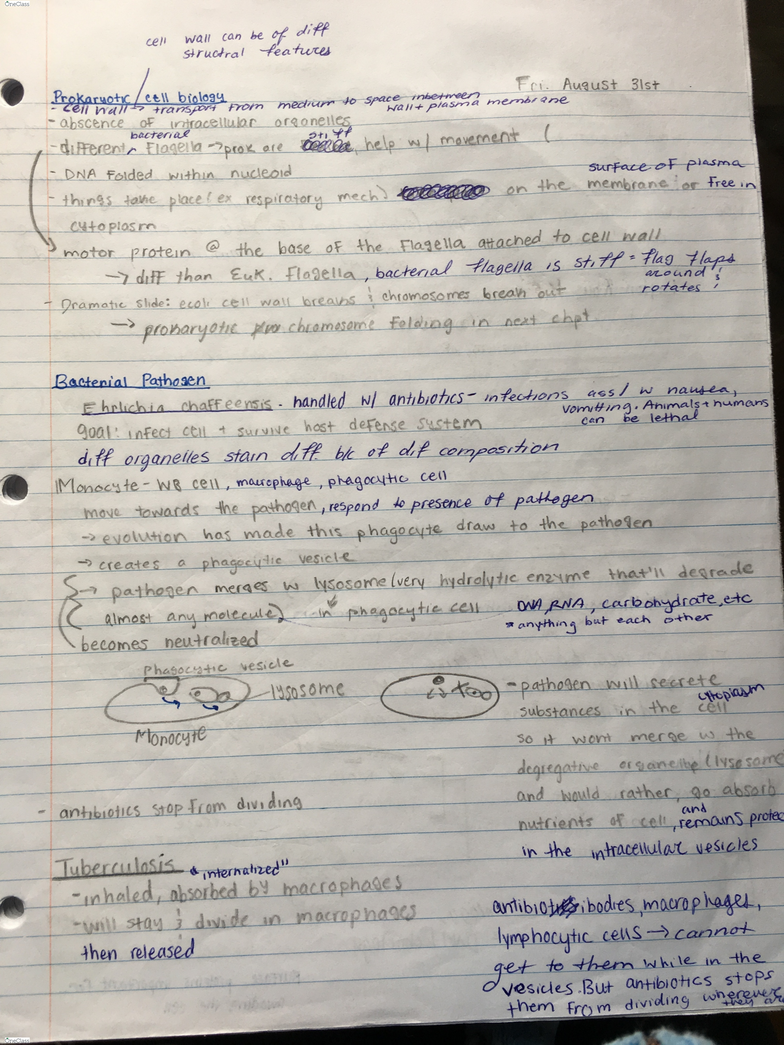 OneClass
cell wall can be of diff
structral features
Fri. August 31st
Prokaryotic / cell biology
- cell wall → transport from medium to space inbetween
wall + plasma membrane
- abscence of intracellular organelles
bacterial
- different Flagella → prok are stiff, help w/ movement (
- DNA folded within nucleoid
surface of plasma
- things take place (ex respiratory mech) on the membrane or free in
cytoplasm
motor protein @ the base of the flagella attached to cell wall
→ diff than Euk. flagella, bacterial flagella is stiff = flag flaps
around &
rotates !
- Dramatic slide: ecoli cell wall breaks & chromosomes break out
→ prokaryotic chromosome folding in next chpt
Bacterial Pathogen
Ehrlichia chaffeensis. handled w/ antibiotics - infections ass/ w nausea,
vomitting. Animals + humans
can be lethal
goal: infect cell + survive host defense system
diff organelles stain diff. b/c of dif composition
Monocyte - WB cell, macrophage, phagocytic cell
move towards the pathogen, respond to presence of pathogen
→ evolution has made this phagocyte draw to the pathogen
→ creates a phagocytic vesicle
→ pathogen merges w lysosome (very hydrolytic enzyme that'll degrade
almost any molecule) in phagocytic cell
DNA, RNA, carbohydrate, etc
* anything but each other
becomes neutralized
Phagocytic vesicle
lysosome
Monocyte
- pathogen will secrete
cytoplasm
substances in the cell
so it wont merge w the
degregative organelle (lysosome
and would rather, go absorb
and
nutrients of cell, remains protec
in the intracellular vesicles
- antibiotics stop from dividing
Tuberculosis * "internalized"
- inhaled, absorbed by macrophages
- will stay & divide in macrophages
then released
antibodies, macrophages,
lymphocytic cells → cannot
get to them while in the
vesicles. But antibiotics stops
them from dividing wherever
they are
OneClass